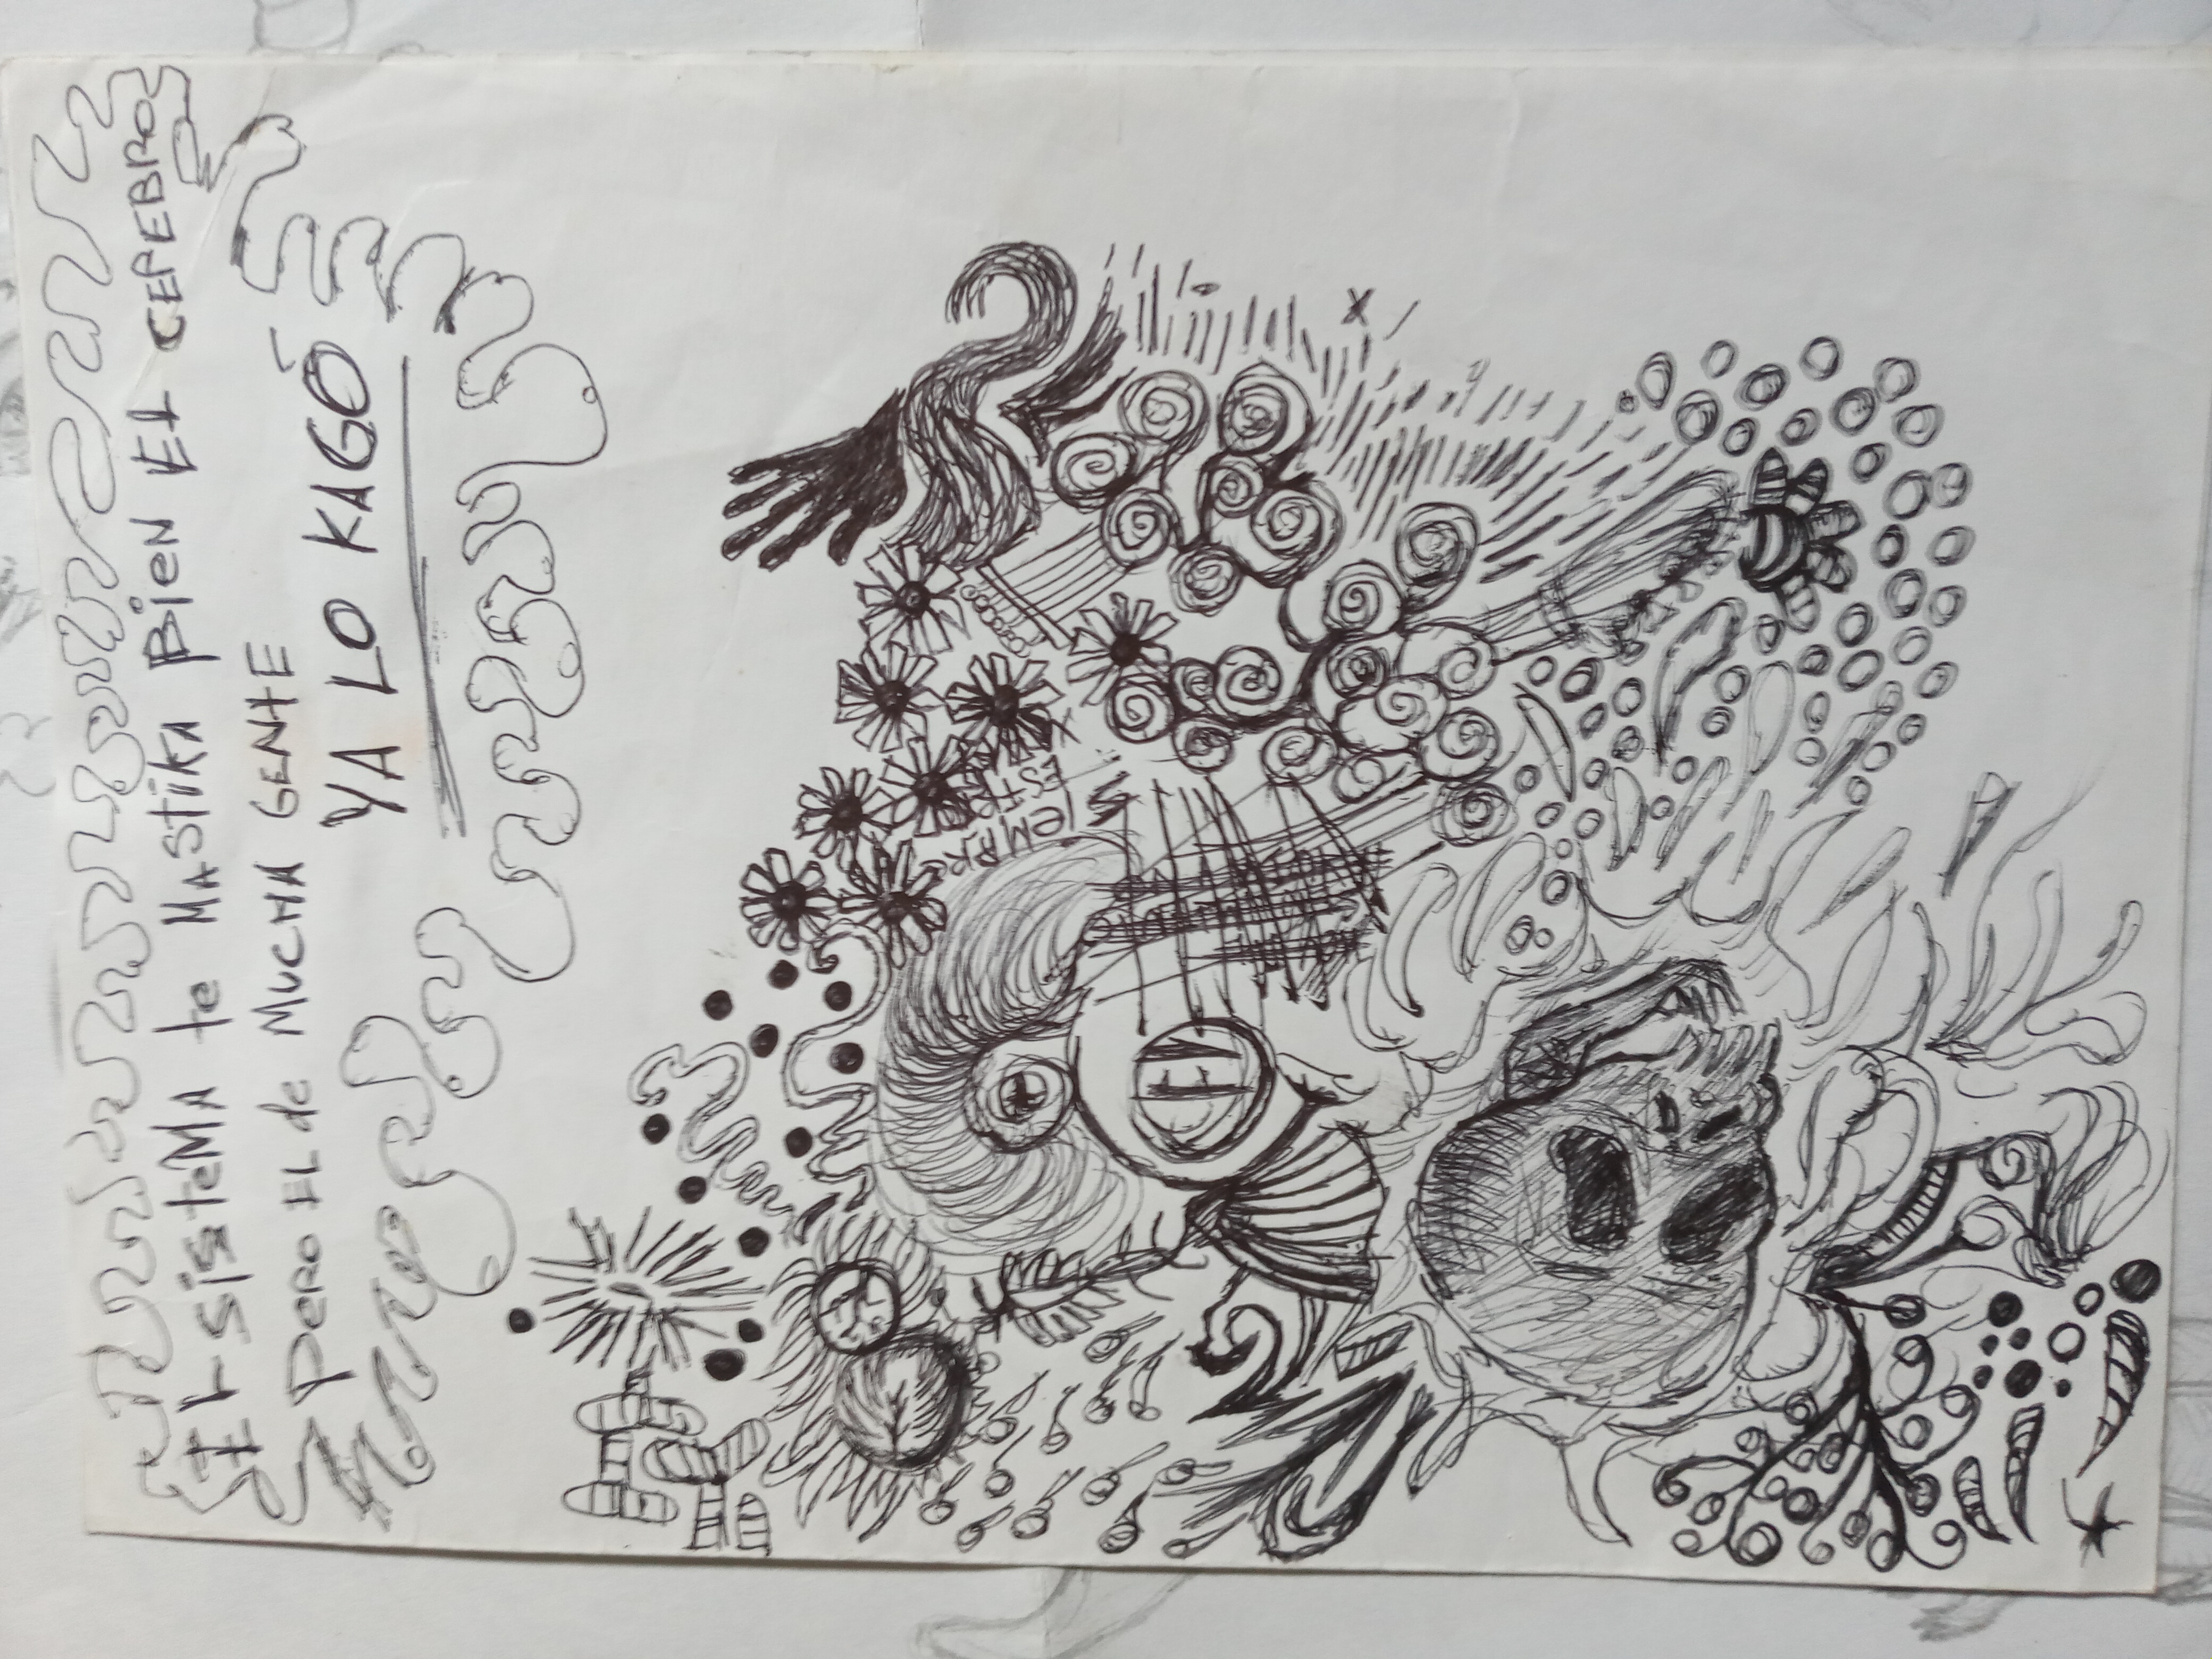 El sisteMA te MAStiKA Bien El CEREBRO
pero El de MucHA GENtE
YA LO KAGÓ
SIEMPRE